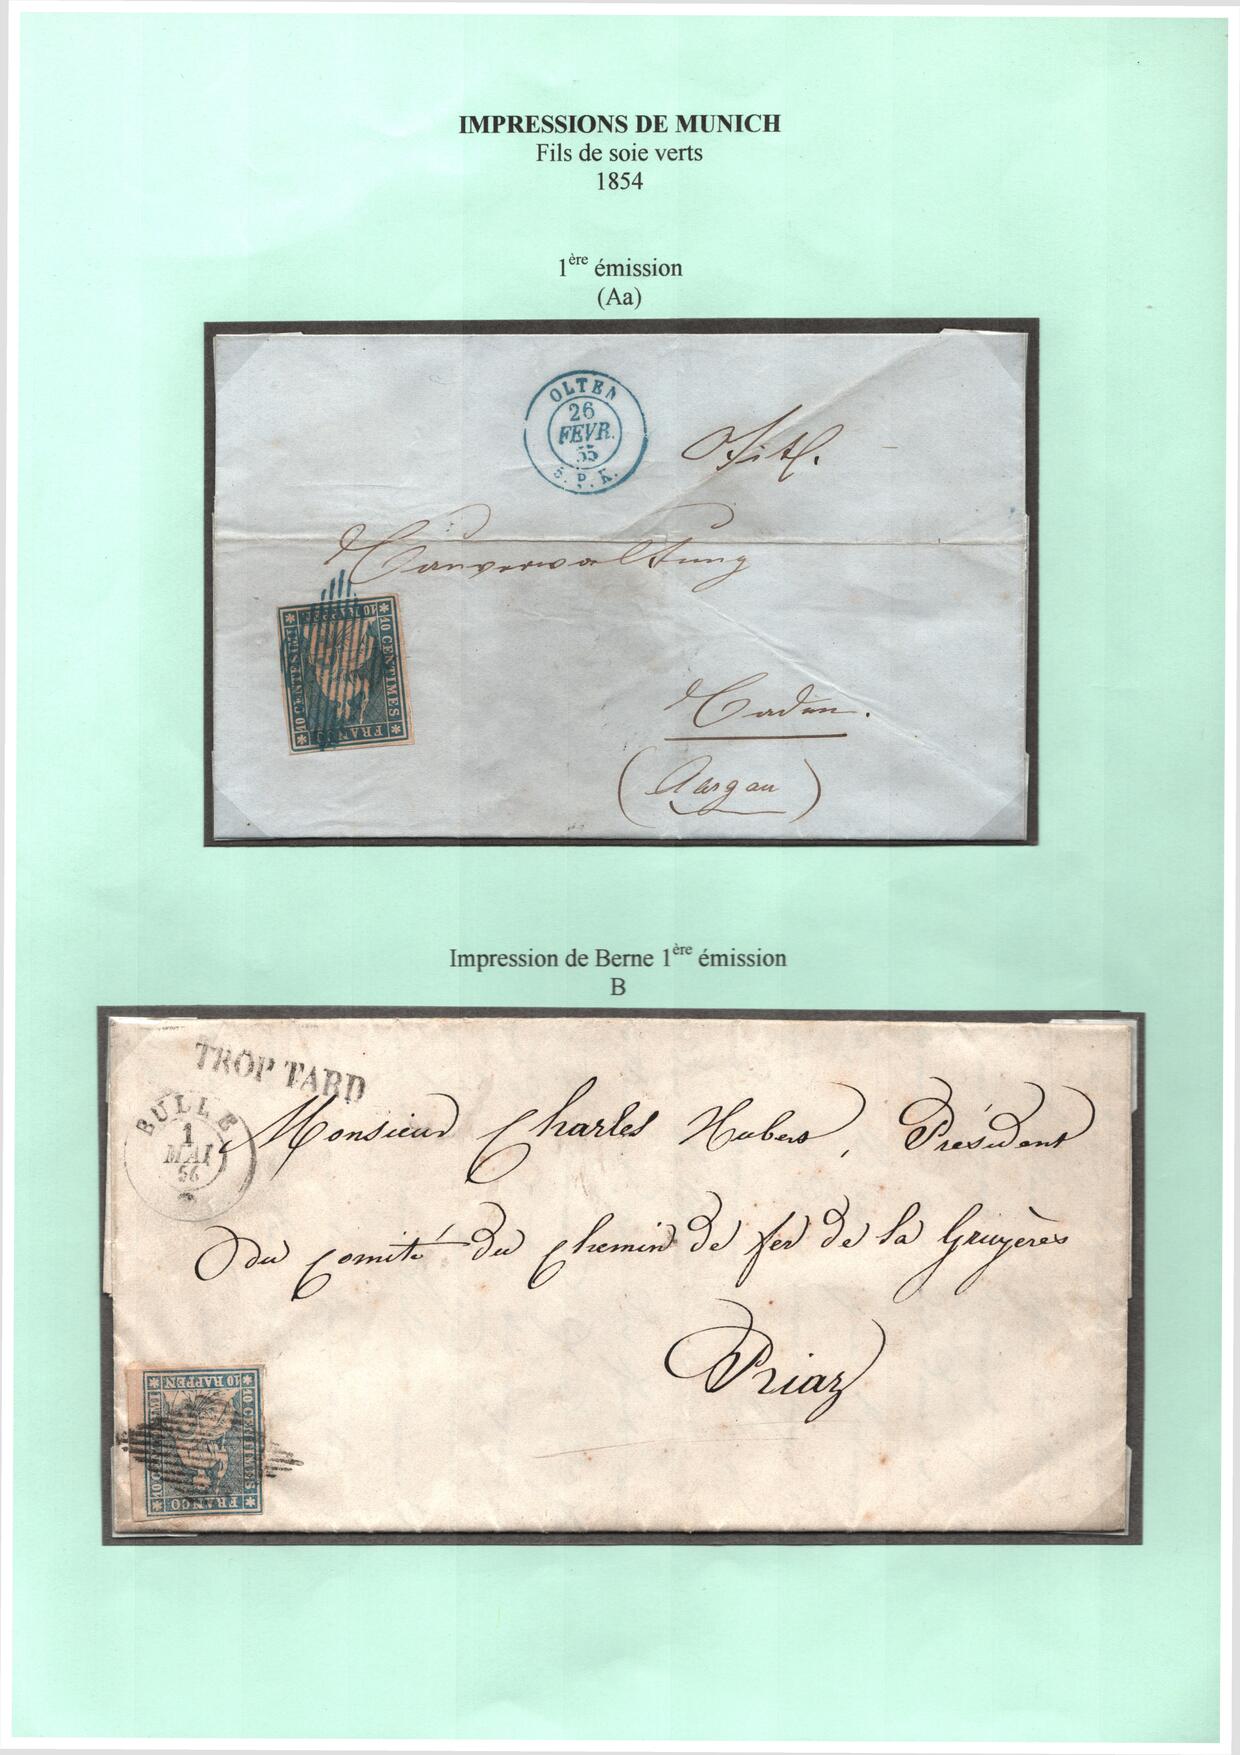 IMPRESSIONS DE MUNICH
Fils de soie verts
1854
1ère émission
(Aa)
OLTEN
26
FEVR.
55
S. P. K.
Tit.
Bauverwaltung
10 RAPPEN
10 CENTESIMI
10 CENTIMES
FRANCO
Baden.
(Aargau)
Impression de Berne 1ère émission
B
TROP TARD
BULLE
1
MAI
56
Monsieur Charles Hubers, Président
du Comité du Chemin de fer de la Gruyères
Riaz
10 RAPPEN
10 CENTESIMI
10 CENTIMES
FRANCO